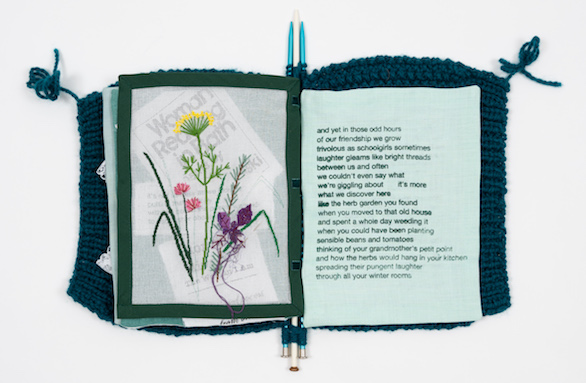 Woman
and yet in those odd hours
of our friendship we grow
frivolous as schoolgirls sometimes
laughter gleams like bright threads
between us and often
we couldn't even say what
we're giggling about it's more
what we discover here
like the herb garden you found
when you moved to that old house
and spent a whole day weeding it
when you could have been planting
sensible beans and tomatoes
thinking of your grandmother's petit point
and how the herbs would hang in your kitchen
spreading their pungent laughter
through all your winter rooms